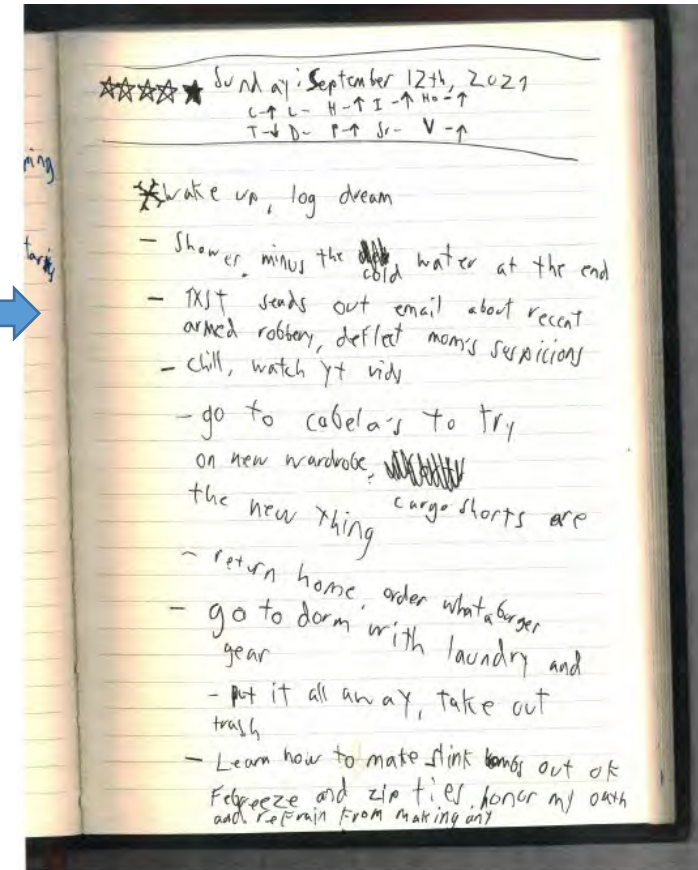 Sunday: September 12th, 2021
C-↑ L- H-↑ I-↑ Ho-↑
T-↓ D- P-↑ Sr- V-↑
ming
wake up, log dream
- Shower, minus the cold water at the end
- TXST sends out email about recent
armed robbery, deflect mom's suspicions
- chill, watch yt vids
- go to cabela's to try
on new wardrobe,
the new thing cargo shorts are
- return home, order whataburger
- go to dorm with laundry and
gear
- put it all away, take out
trash
- Learn how to make stink bombs out of
Febreeze and zip ties, honor my oath
and refrain from making any